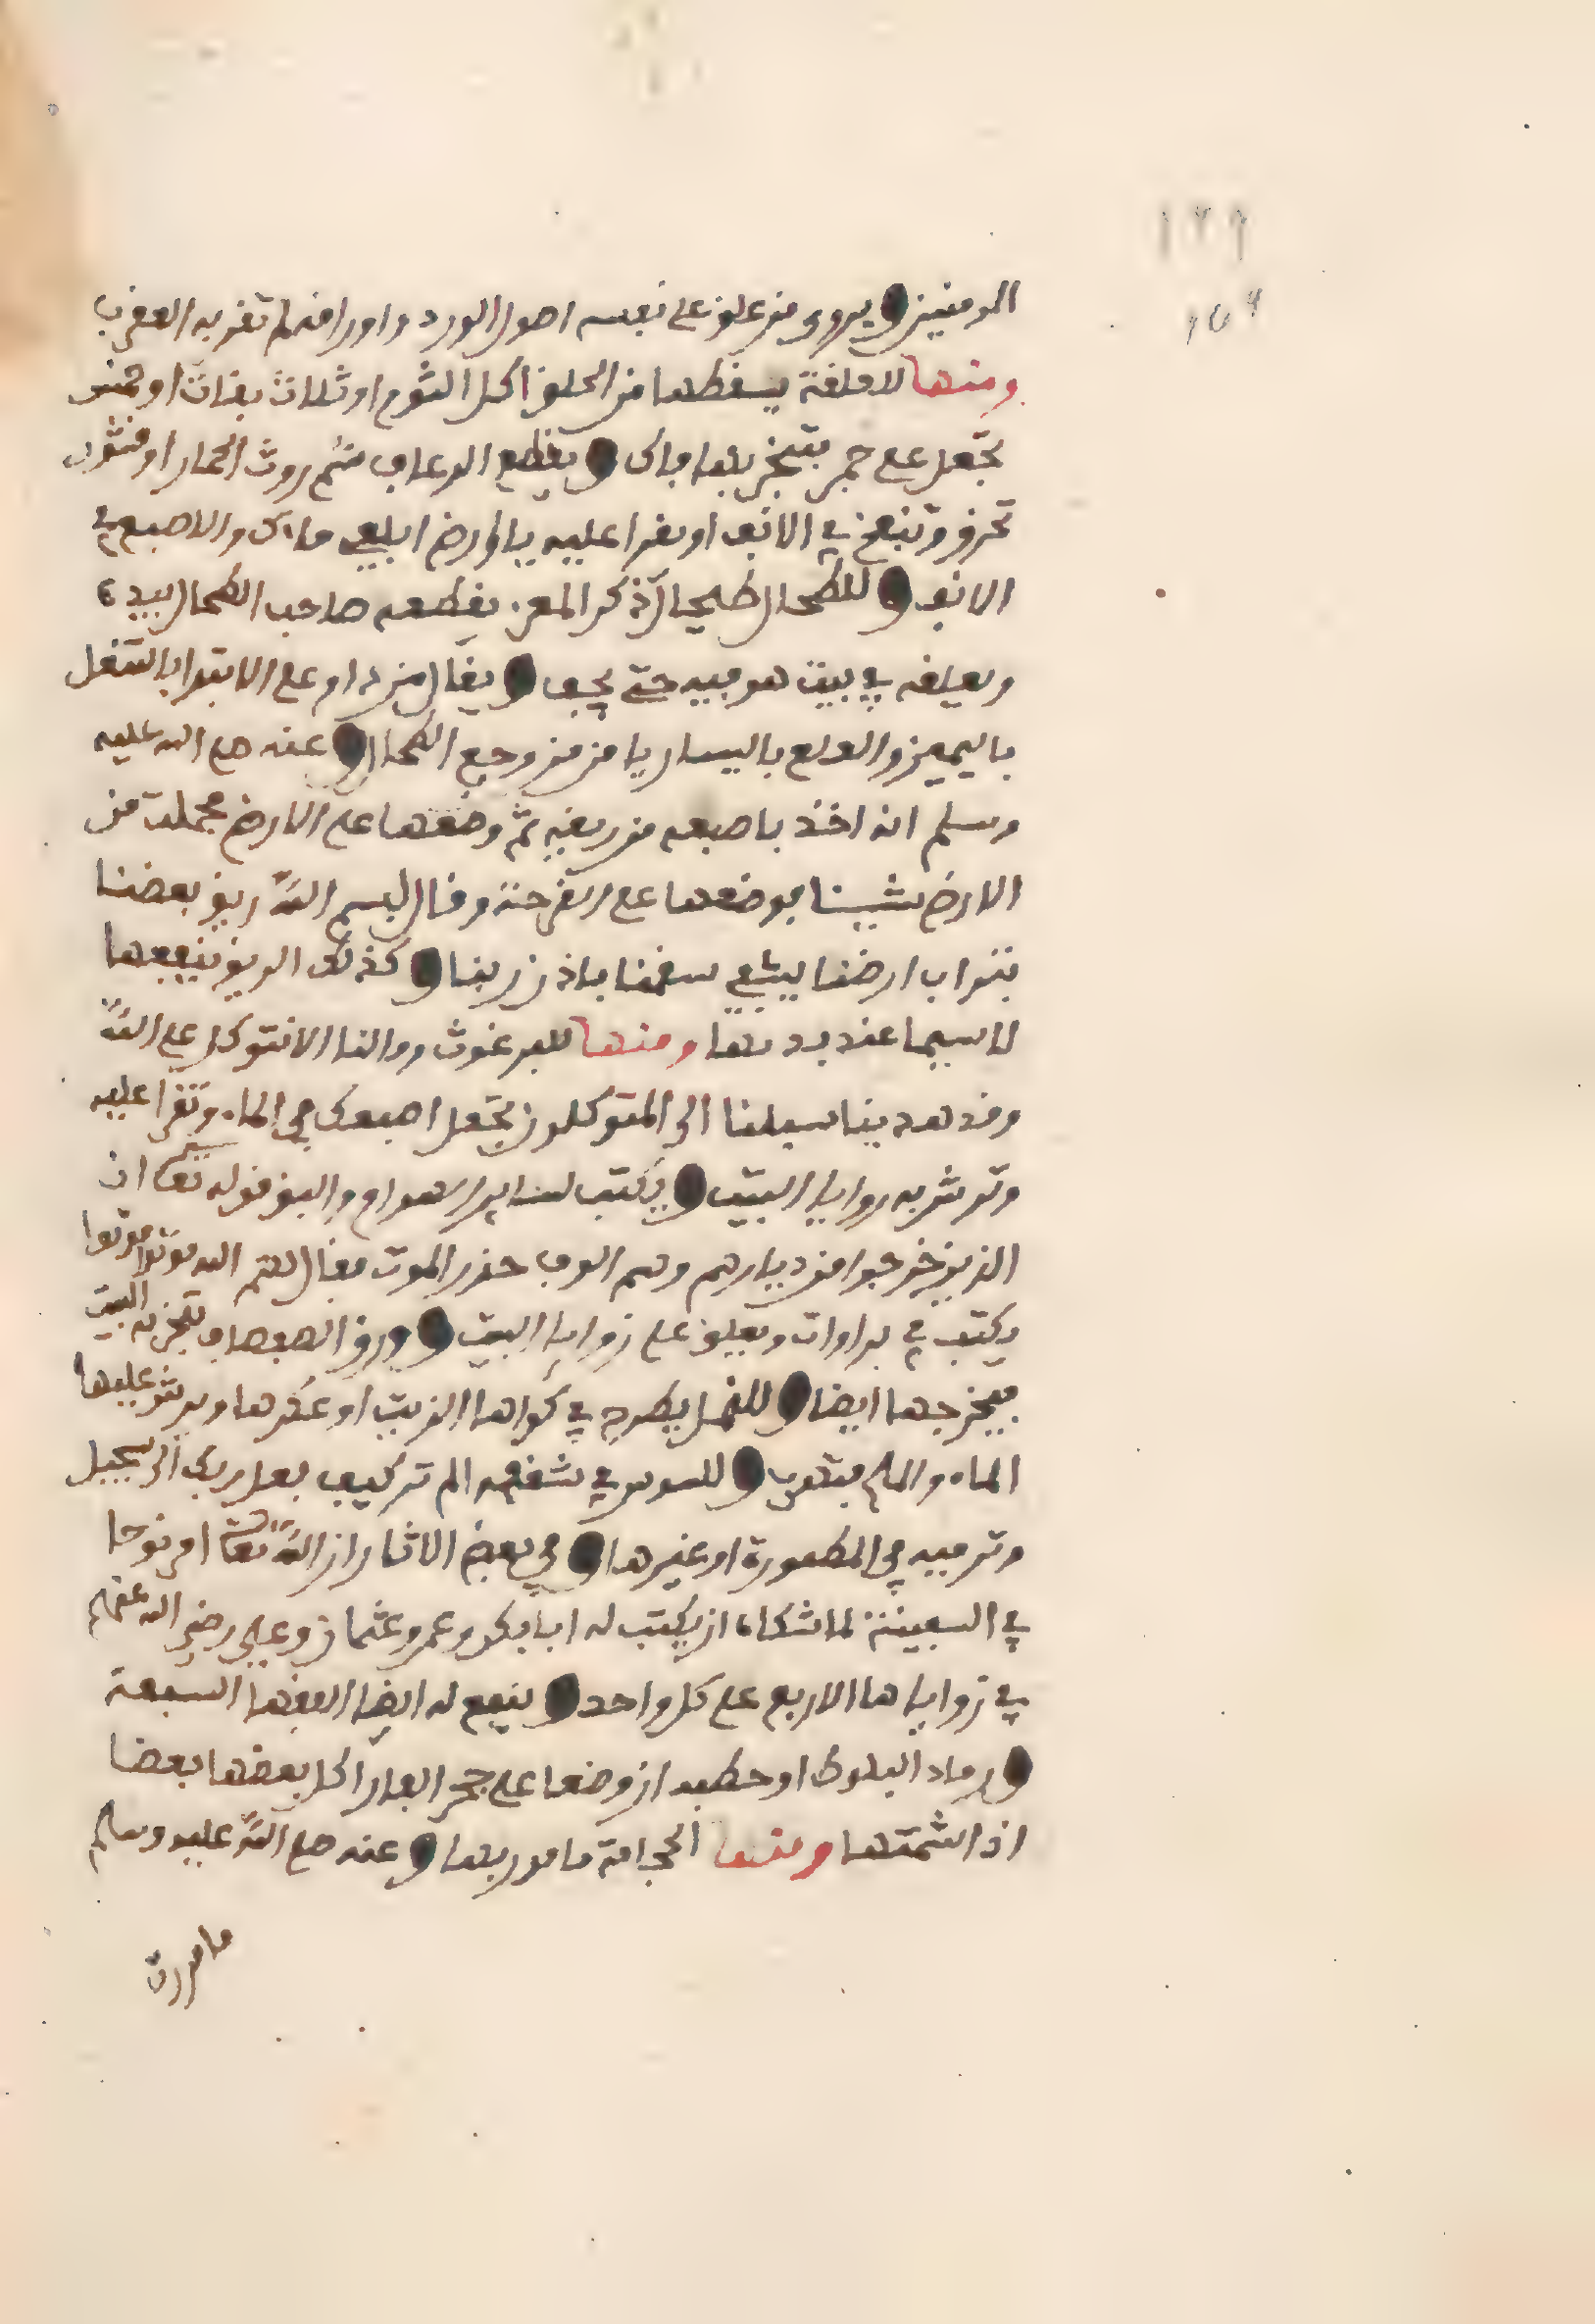 ١٢٩
١٥٩
المومنين و يروى من علق على نفسه اصول الورد واوراقه لم تقربه العقرب
ومنها لا علقة يسقطها من الحلق اكل الثوم او ثلاث بقات او
تجعل على جمر يتبخر بها و يقطع الرعاف شم روث الحمار او
تحرق وتنفخ في الانف او يقرا عليه يا ارض ابلعي ماءك والاصبع في
الانف و للطحال طيحال ذكر المعز يقطعه صاحب الطحال بيده
ويعلقه في بيت هو فيه حتى يجف و يقال من داوم على الابتداء بالتنعل
باليمين والخلع باليسار يامن من وجع الطحال و عنه صلى الله عليه
وسلم انه اخذ باصبعه من ريقه ثم وضعها على الارض فحملت من
الارض شيئا فوضعها على القرحة وقال بسم الله ريق بعضنا
بتراب ارضنا يشفي سقمنا باذن ربنا و كذلك الريق ينفعها
لا سيما عند بدئها ومنها للبرغوث ومالنا الا نتوكل على الله
وقد هدينا سبلنا الى المتوكلون تجعل اصبعك في الماء وتقرا عليه
وترش به زوايا البيت و يكتب لسائر الهوام والبق قوله تعالى ان
الذين خرجوا من ديارهم وهم الوف حذر الموت فقال لهم الله موتوا موتوا
يكتب في براوات ويعلق على زوايا البيت و ورق الصفصاف يبخر به البيت
فيخرجها ايضا و للنمل يطرح في كواها الزيت او عكرها ويرش عليها
الماء والملح فتهرب و للسوس في شقفه الم تر كيف فعل ربك الى سجيل
وترميه في المطمورة او غيرها و في بعض الاثار ان الله تعالى امر نوحا
في السفينة لما شكا ان يكتب له ابا بكر وعمر وعثمان وعلي رضي الله عنهم
في زواياها الاربع على كل واحد و ينفع له ايضا الفقهاء السبعة
و رماد البلوط او حطبه ان وضعا على جحر الفار اكل بعضها بعضا
اذا شمتها ومنها الحجامة مامور بها و عنه صلى الله عليه وسلم
ما مررت